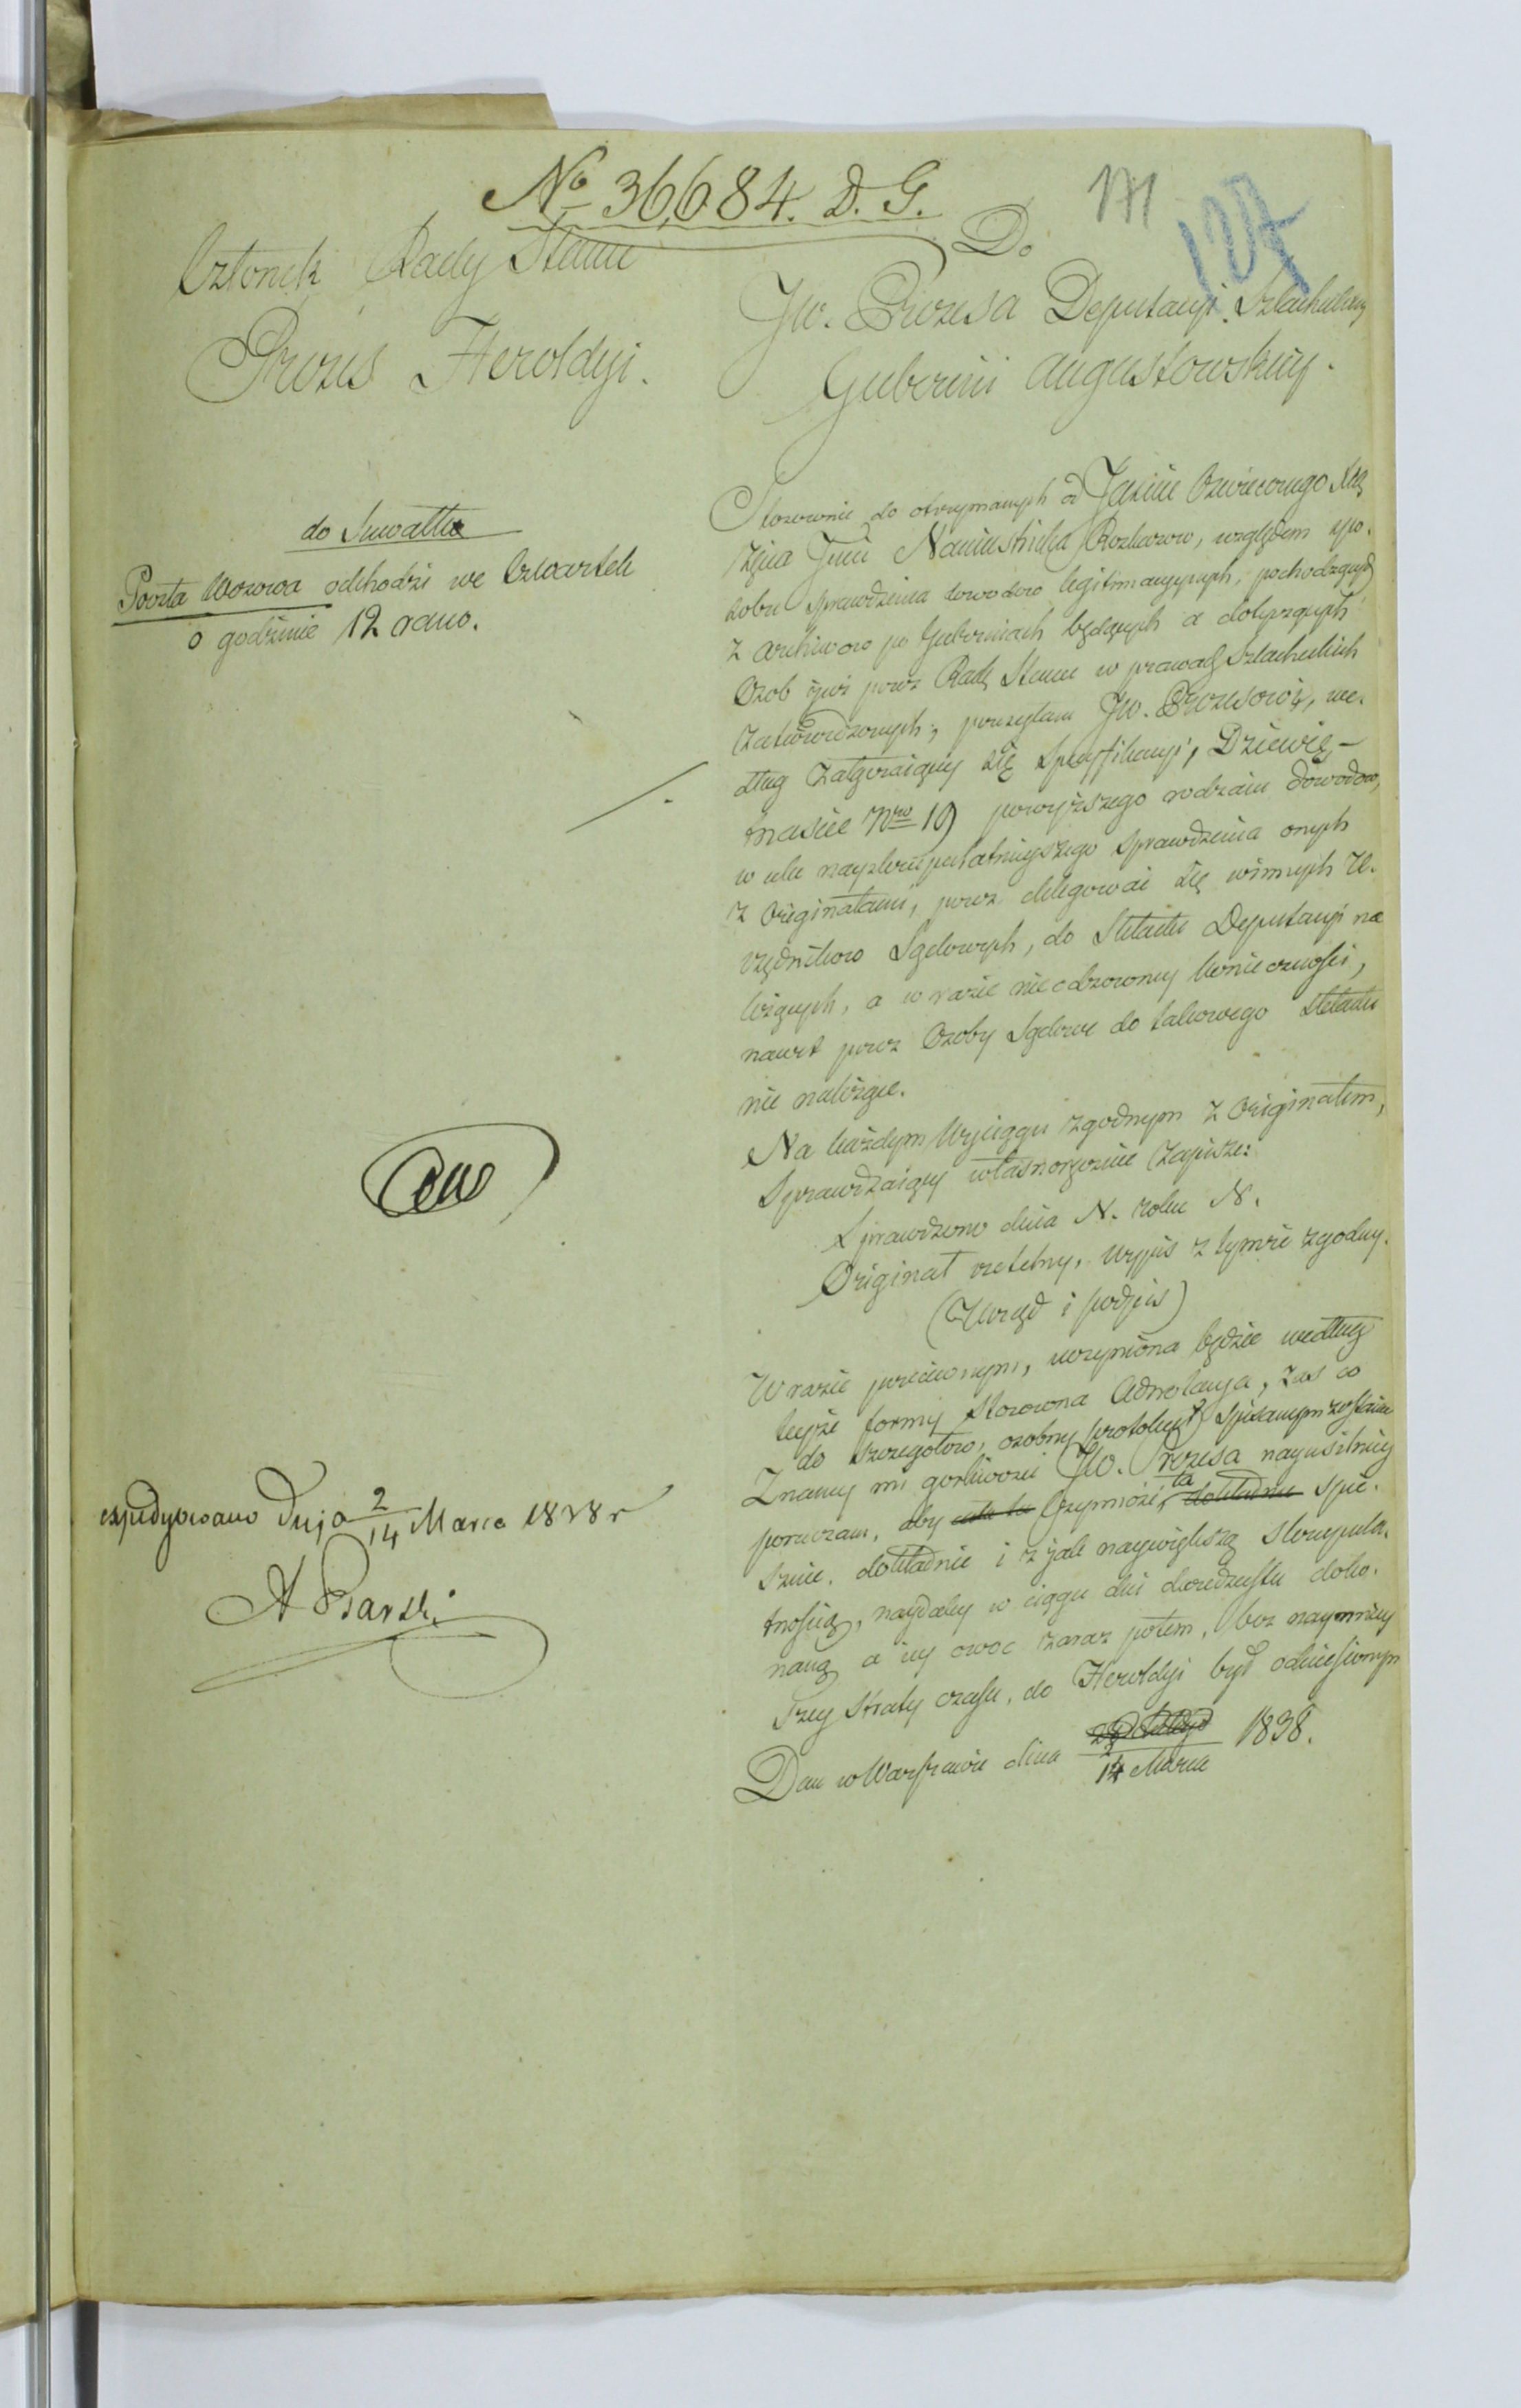 No 36,684. D. G.
171
127
Członek Rady Stanu
Prezes Heroldyi.
do Suwałk
Poczta Wozowa odchodzi we Czwartek
o godzinie 12 rano.
expedyowano Dnja 2/14 Marca 1838 r
Do
JW. Prezesa Deputacyi Szlacheckiey
Gubernii Augustowskiey.
Stosownie do otrzymanych od Jaśnie Oświeconego Xię
żęcia Jmci Namiestnika Rozkazów, względem spo-
sobu sprawdzenia dowodów legitimacyjnych, pochodzących
z Archiwów po Guberniach będących a dotyczących
Osób iuż przez Radę Stanu w prawach Szlacheckich
zatwierdzonych; przesyłam JW. Prezesowi, we-
dług załączaiącey się Specyfikacyi, Dziewię-
tnaście Nro 19 powyższego rodzaiu dowodów,
w celu nayskrupulatnieyszego sprawdzenia onych
z Originałami, przez delegować się winnych U-
rzędników Sądowych, do Składu Deputacyi na
leżących, a w razie nieodzowney konieczności,
nawet przez Osoby Sądowe do takowego składu
nie należące.
Na każdym Wyciągu zgodnym z Originałem,
Sprawdzaiący własnoręcznie zapisze:
Sprawdzono dnia N. roku N.
Originał rzetelny, wypis z tymże zgodny.
(Urząd i podpis)
W razie przeciwnym, uczyniona będzie według
teyże formy stosowna Adnotacya, zas co
do szczegółów, osobny protokuł spisanym zostanie
Znaney mi gorliwości JW. Prezesa nayusilniey
poruczam, aby Czynność ta dokładnie spie-
sznie, dokładnie i z jak naywiększą skrupula-
tnością, naydaley w ciągu dni dwudziestu doko-
naną a iey owoc zaraz potem, bez naymniey
szey straty czasu, do Heroldyi był odniesionym
Dan w Warszawie dnia 2/14 Marca 1838.